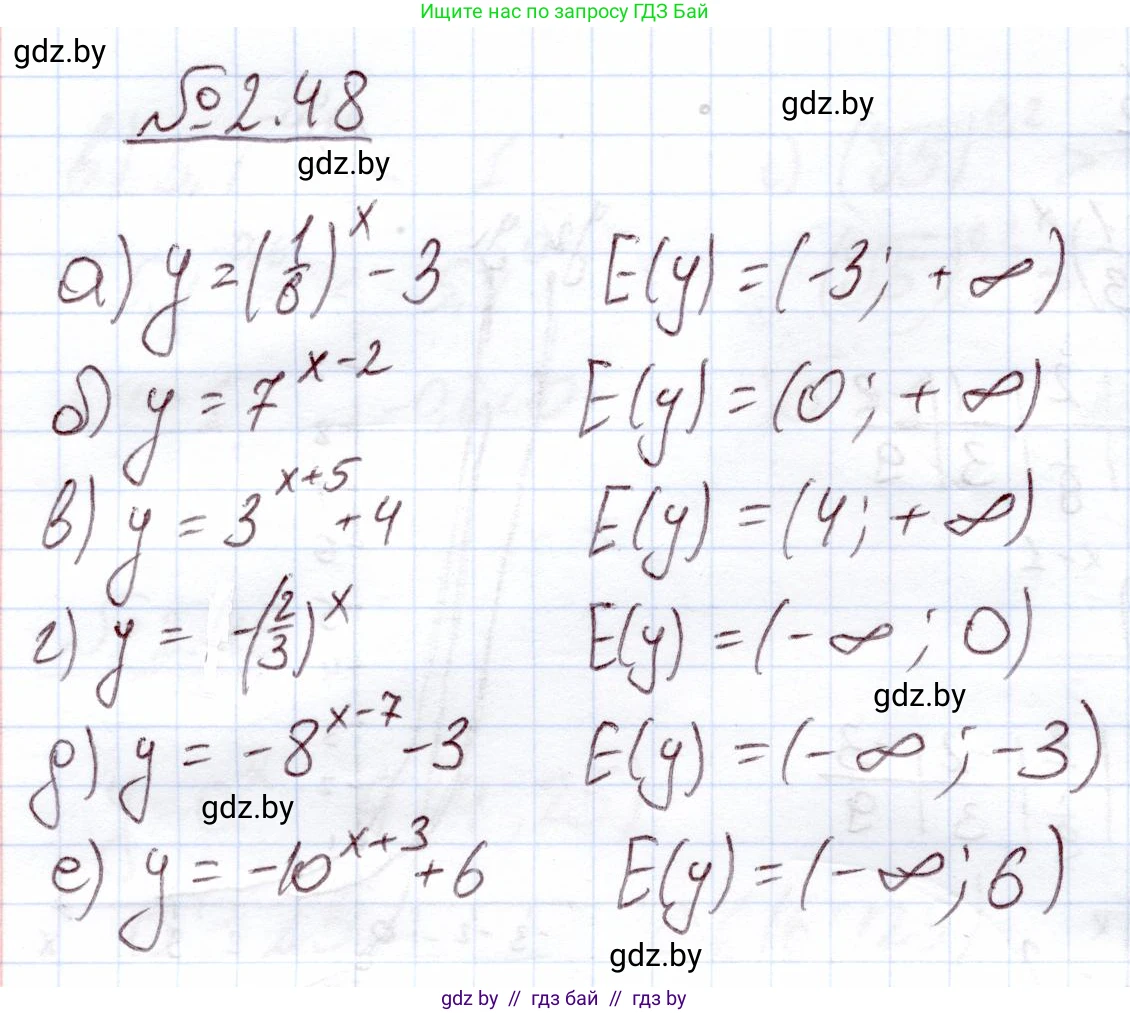 Ищите нас по запросу ГДЗ Бай
gdz.by
№ 2.48
gdz.by
gdz.by
а) y = (1/8)^x - 3 E(y) = (-3; +∞)
б) y = 7^(x-2) E(y) = (0; +∞)
в) y = 3^(x+5) + 4 E(y) = (4; +∞)
г) y = -(2/3)^x E(y) = (-∞; 0)
gdz.by
д) y = -8^(x-7) - 3 E(y) = (-∞; -3)
gdz.by
е) y = -10^(x+3) + 6 E(y) = (-∞; 6)
gdz.by
gdz by // гдз бай // гдз by